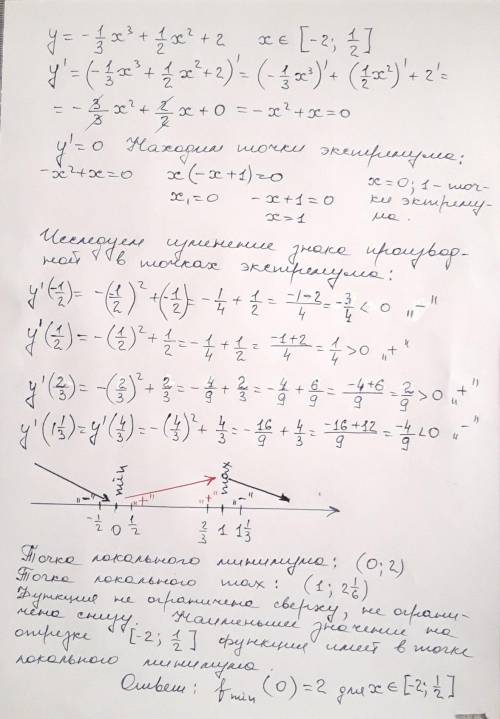 y = -1/3 x³ + 1/2 x² + 2   x ∈ [-2; 1/2]
y' = (-1/3 x³ + 1/2 x² + 2)' = (-1/3 x³)' + (1/2 x²)' + 2' =
= -3/3 x² + 2/2 x + 0 = -x² + x = 0
y' = 0   Находим точки экстремума:
-x² + x = 0   x(-x + 1) = 0   x = 0; 1 - точ-
x₁ = 0   -x + 1 = 0   ки экстрему-
x = 1   ма.
Исследуем изменение знака производ-
ной в точках экстремума:
y'(-1/2) = -(-1/2)² + (-1/2) = -1/4 + 1/2 = (-1-2)/4 = -3/4 < 0 „-"
y'(1/2) = -(1/2)² + 1/2 = -1/4 + 1/2 = (-1+2)/4 = 1/4 > 0 „+"
y'(2/3) = -(2/3)² + 2/3 = -4/9 + 2/3 = -4/9 + 6/9 = (-4+6)/9 = 2/9 > 0 „+"
y'(1 1/3) = y'(4/3) = -(4/3)² + 4/3 = -16/9 + 4/3 = (-16+12)/9 = -4/9 < 0 „-"
min   max
„-"   „+"   „+"   „-"
-1/2   0   1/2   2/3   1   1 1/3
Точка локального минимума: (0; 2)
Точка локального max: (1; 2 1/6)
Функция не ограничена сверху, не ограни-
чена снизу. Наименьшее значение на
отрезке [-2; 1/2] функция имеет в точке
локального минимума.
Ответ: f min (0) = 2 для x ∈ [-2; 1/2]